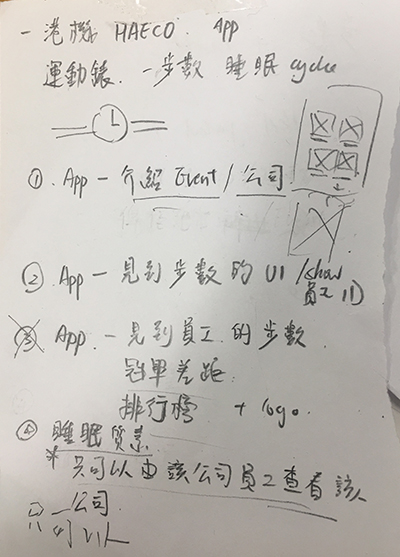 一 港機 HAECO. App
運動錶. 一步數 睡眠 cycle
① . App — 介紹 Event / 公司
② App — 見到步數的 UI /show
員工 ID
③ App. — 見到員工的步數
冠軍差距.
排行榜 + logo.
④ 睡眠質素
* 只可以由該公司員工查看該
公司
只可以